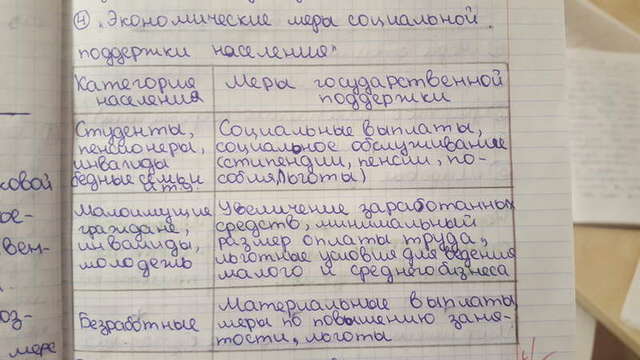 ④ „Экономические меры социальной
поддержки населения"
Категория населения
Меры государственной поддержки
Студенты,
пенсионеры,
инвалиды
бедные семьи
и тд.
Социальные выплаты,
социальное обслуживание
(стипендии, пенсии, по-
собия, льготы)
Малоимущие
граждане,
инвалиды,
молодежь
Увеличение заработанных
средств, минимальный
размер оплаты труда,
льготные условия для ведения
малого и среднего бизнеса
Безработные
Материальные выплаты
меры по повышению заня-
тости, льготы
ое-
вен-
оз-
мере